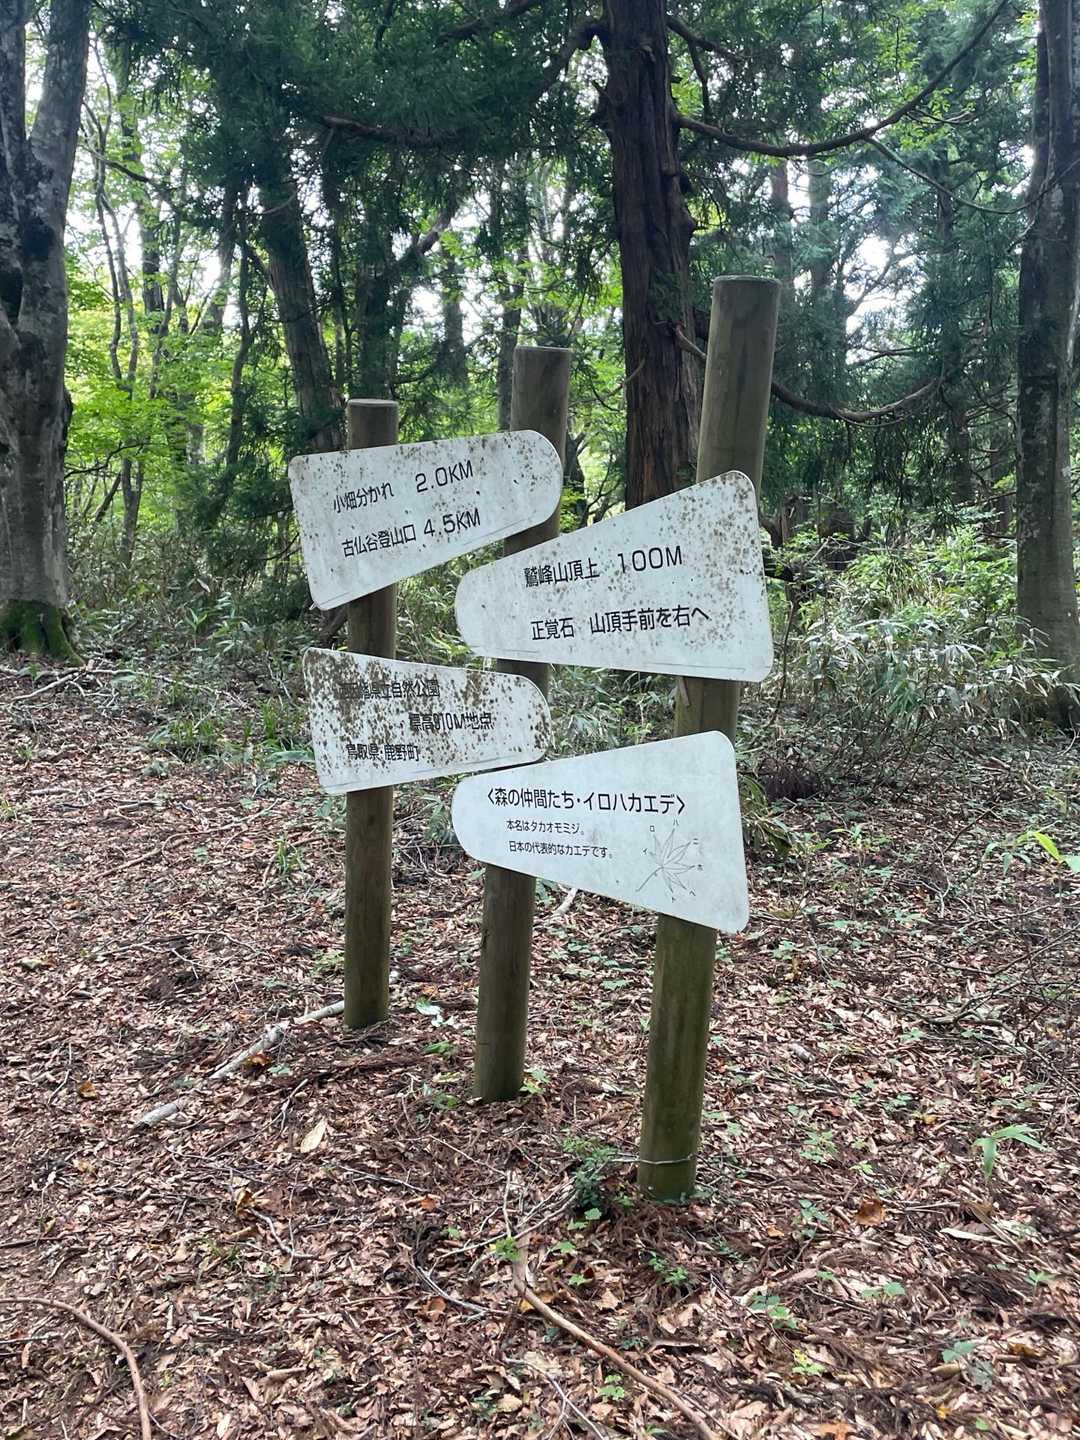 小畑分かれ 2.0KM
古仏谷登山口 4.5KM
鷲峰山頂上 100M
正覚石 山頂手前を右へ
西因幡県立自然公園
標高910M地点
鳥取県・鹿野町
〈森の仲間たち・イロハカエデ〉
本名はタカオモミジ。
日本の代表的なカエデです。
イ
ロ
ハ
ニ
ホ
ヘ
ト